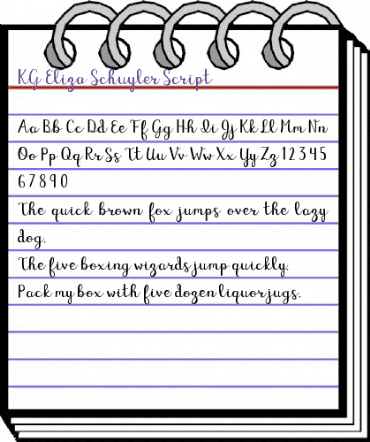 KG Eliza Schuyler Script
Aa Bb Cc Dd Ee Ff Gg Hh Ii Jj Kk Ll Mm Nn
Oo Pp Qq Rr Ss Tt Uu Vv Ww Xx Yy Zz 1 2 3 4 5
6 7 8 9 0
The quick brown fox jumps over the lazy
dog.
The five boxing wizards jump quickly.
Pack my box with five dozen liquor jugs.